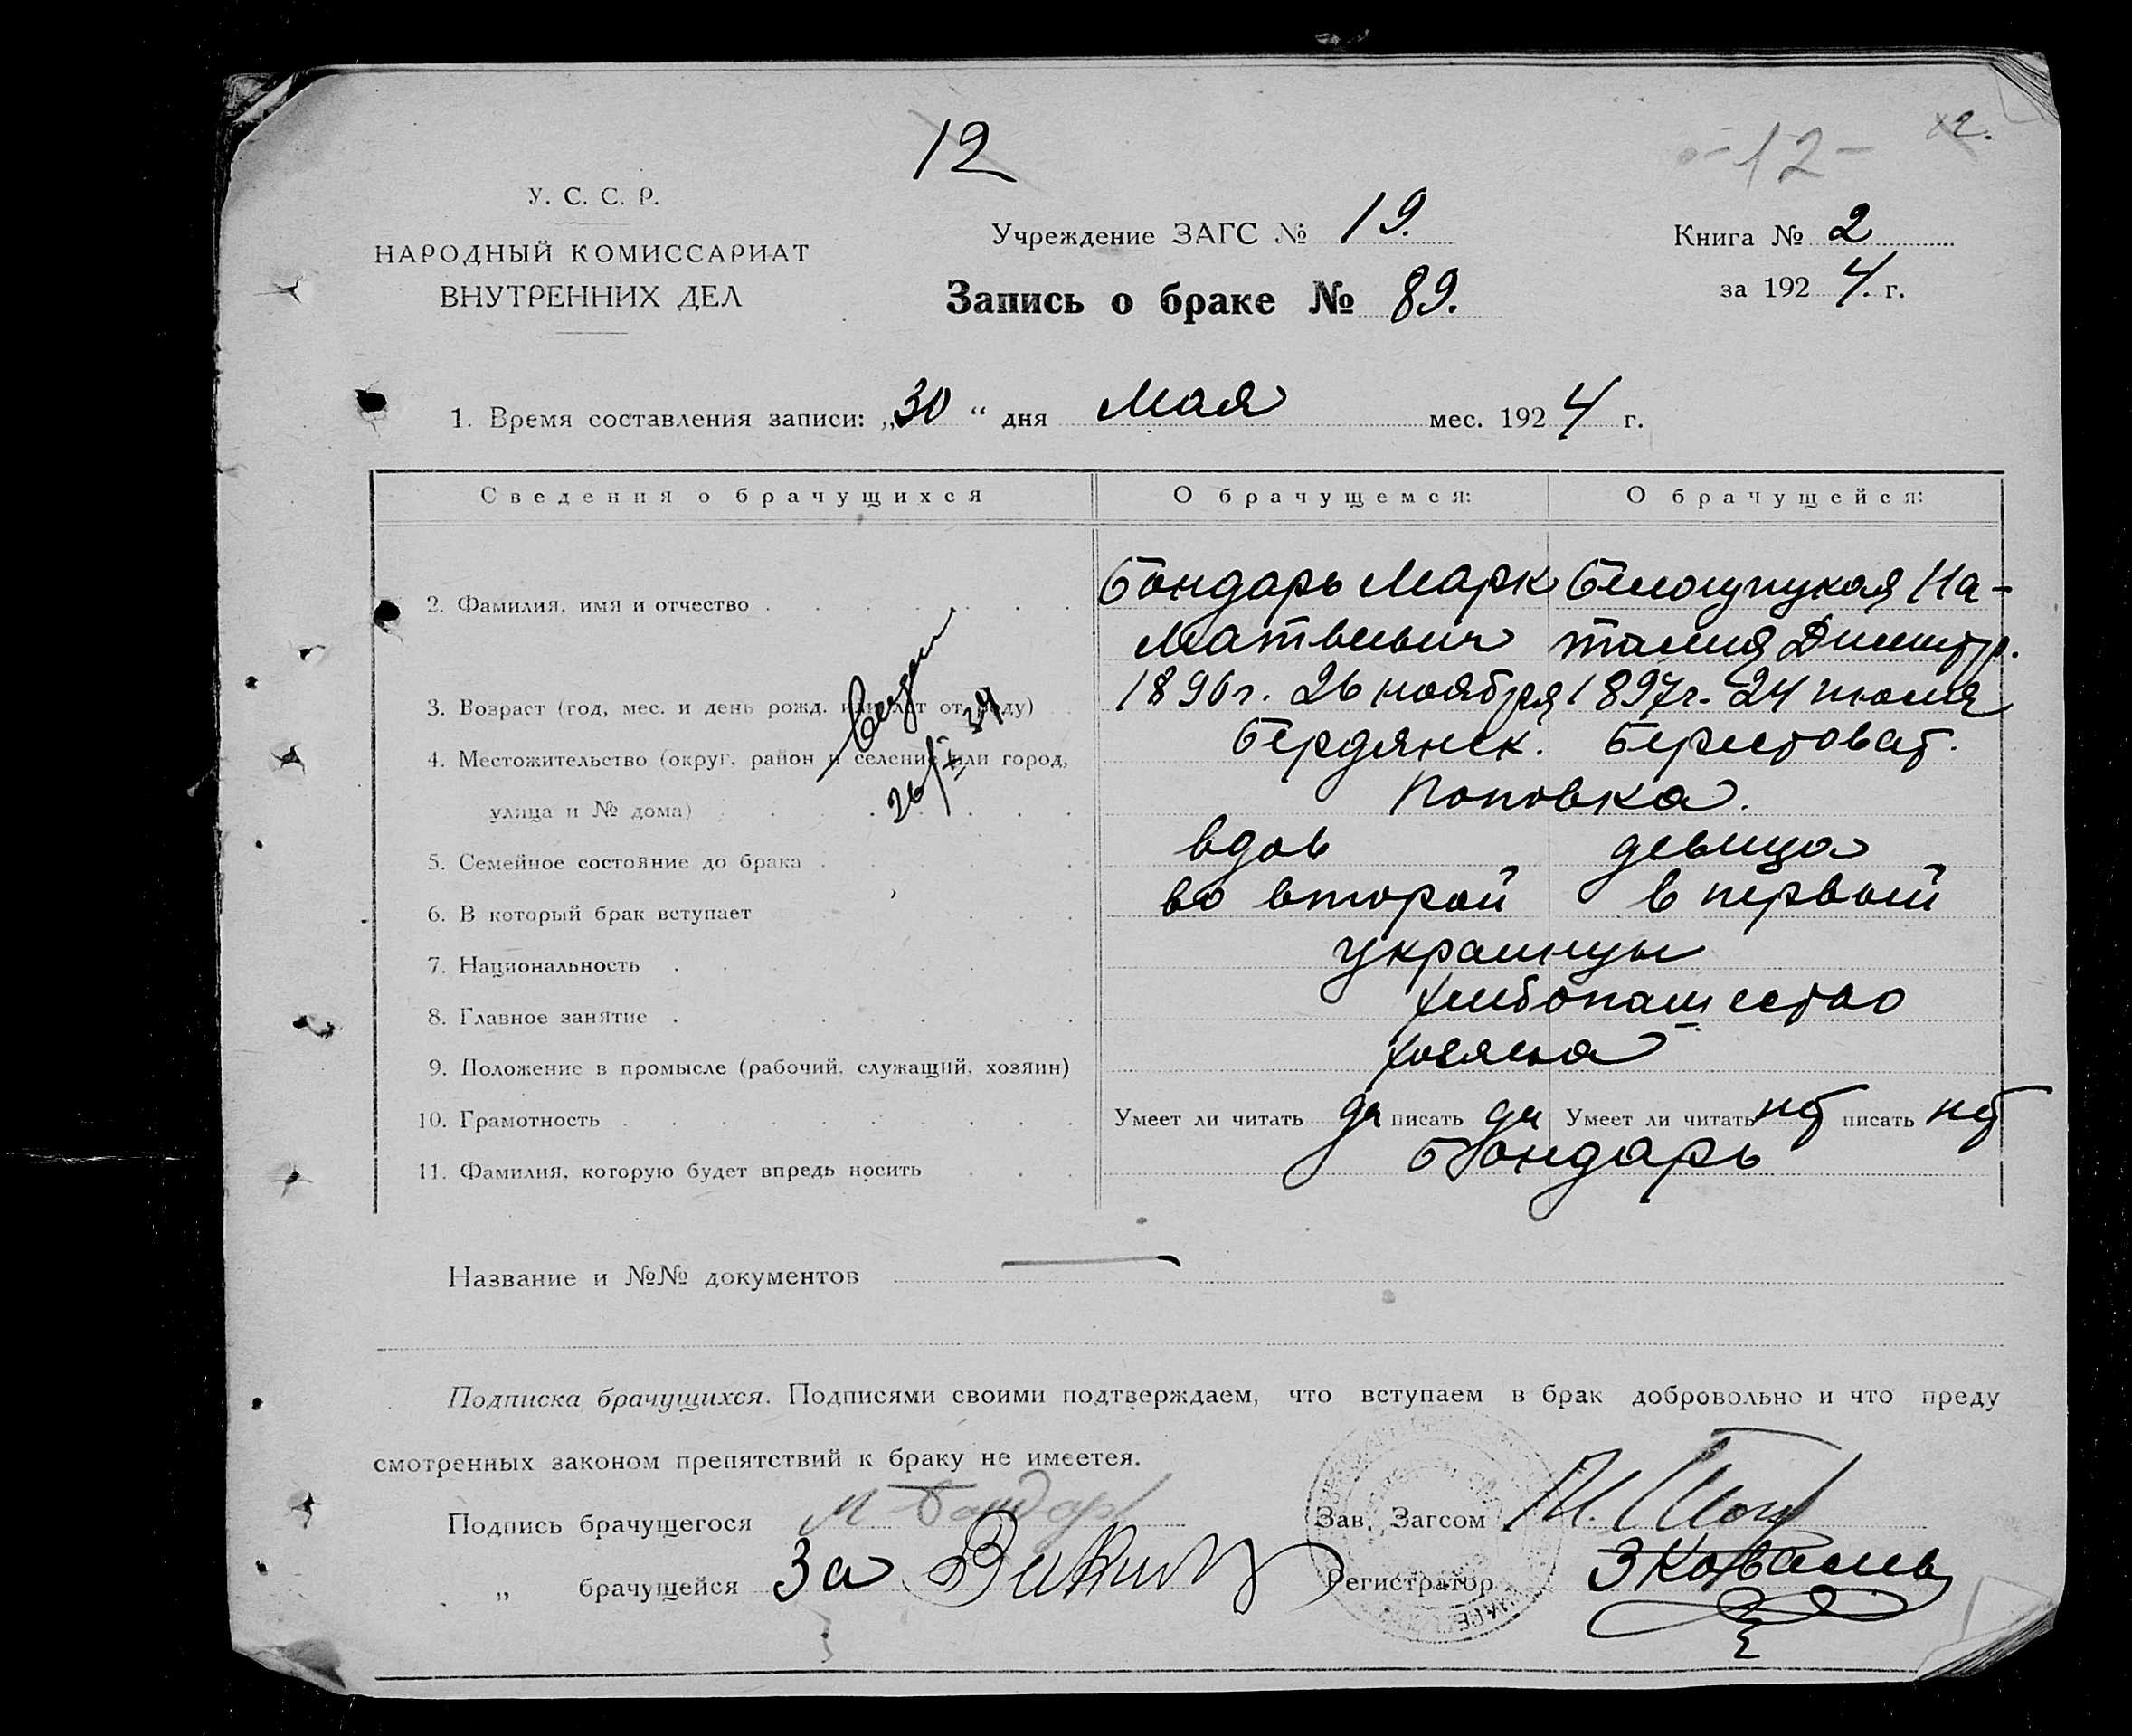 12
-12-
У. С. С. Р.
НАРОДНЫЙ КОМИССАРИАТ
ВНУТРЕННИХ ДЕЛ
Учреждение ЗАГС № 19.
Книга № 2
Запись о браке № 89.
за 1924. г.
1. Время составления записи: „30“ дня Мая мес. 1924 г.
Сведения о брачущихся О брачущемся: О брачущейся:
2. Фамилия, имя и отчество Бондарь Марк На-
Матвеевич талия Димитр.
3. Возраст (год, мес. и день рожд. или лет от роду) 1896 г. 26 ноября 1897 г. 24 июля
4. Местожительство (округ, район и селение или город, Бердянск. Берестоват.
улица и № дома) Поповка.
5. Семейное состояние до брака вдов девица
6. В который брак вступает во второй в первый
7. Национальность украинцы
8. Главное занятие хлебопашество
9. Положение в промысле (рабочий, служащий, хозяин) хозяева
10. Грамотность Умеет ли читать да писать да Умеет ли читать нет писать нет
11. Фамилия, которую будет впредь носить Бондарь
26/ 34
Название и №№ документов —
Подписка брачущихся. Подписями своими подтверждаем, что вступаем в брак добровольно и что преду
смотренных законом препятствий к браку не имеетея.
Подпись брачущегося М Бондарь
Зав. Загсом
„ брачущейся За
Регистратор ЗКоваль